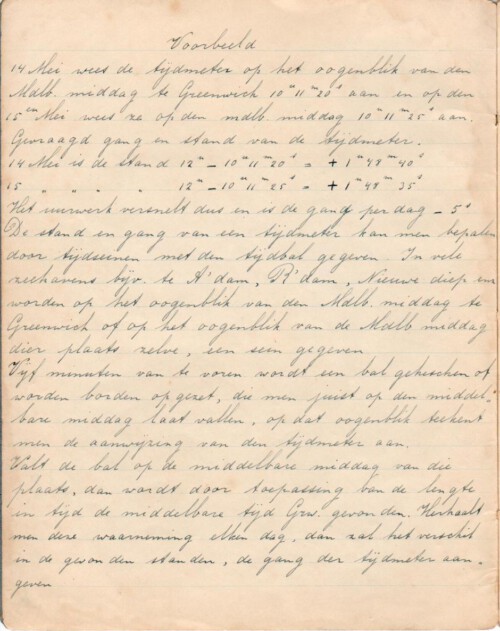 Voorbeeld
14 Mei wees de tijdmeter op het oogenblik van den
Mdlb. middag te Greenwich 10ᵘ 11ᵐ 20ˢ aan en op den
15en Mei wees ze op den mdlb. middag 10ᵘ 11ᵐ 25ˢ aan.
Gevraagd gang en stand van de tijdmeter.
14 Mei is de stand 12ᵘ – 10ᵘ 11ᵐ 20ˢ = + 1ᵘ 48ᵐ 40ˢ
15 " " " " 12ᵘ – 10ᵘ 11ᵐ 25ˢ = + 1ᵘ 48ᵐ 35ˢ
Het uurwerk versnelt dus en is de gang per dag – 5ˢ
De stand en gang van een tijdmeter kan men bepalen
door tijdseinen met den tijdbal gegeven. In vele
zeehavens bijv. te A'dam, R'dam, Nieuwe diep enz
worden op het oogenblik van den Mdlb. middag te
Greenwich of op het oogenblik van de Mdlb middag
dier plaats zelve, een sein gegeven
Vijf minuten van te voren wordt een bal geheschen of
worden borden opgezet, die men juist op den middel-
bare middag laat vallen, op dat oogenblik teekent
men de aanwijzing van den tijdmeter aan.
Valt de bal op de middelbare middag van die
plaats, dan wordt door toepassing van de lengte
in tijd de middelbare tijd Grw. gevonden. Herhaalt
men deze waarneming elken dag, dan zal het verschil
in de gevonden standen, de gang der tijdmeter aan-
geven